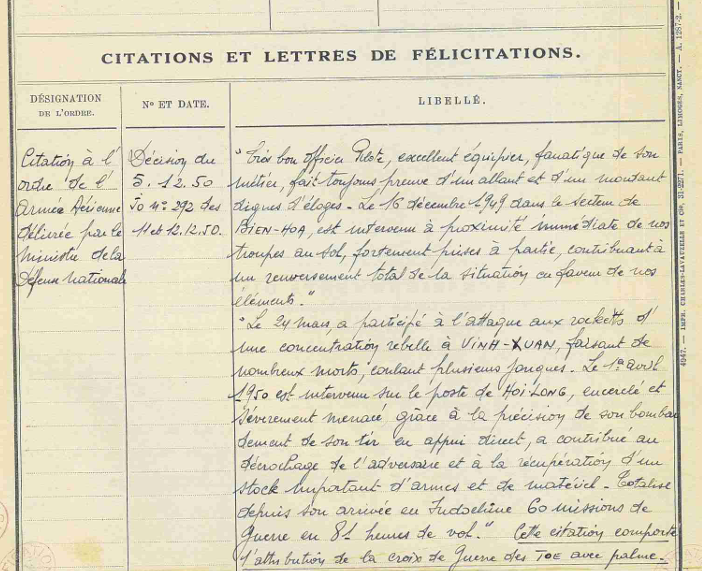 CITATIONS ET LETTRES DE FÉLICITATIONS.
DÉSIGNATION
DE L'ORDRE.
Nº ET DATE.
LIBELLÉ.
Citation à l'
ordre de l'
Armée Aérienne
délivrée par le
ministre de la
Défense nationale
Décision du
5.12.50
JO nº 292 des
11 et 12.12.50.
"Très bon officier Pilote, excellent équipier, fanatique de son
métier, fait toujours preuve d'un allant et d'un mordant
dignes d'éloges. - Le 16 décembre 1949 dans le secteur de
BIEN-HOA, est intervenu à proximité immédiate de nos
troupes au sol, fortement prises à partie, contribuant à
un renversement total de la situation en faveur de nos
éléments."
"Le 24 mars, a participé à l'attaque aux rocketts d'
une concentration rebelle à VINH-XUAN, faisant de
nombreux morts, coulant plusieurs jonques. Le 1er avril
1950 est intervenu sur le poste de HOI LONG, encerclé et
sévèrement menacé grâce à la précision de son bombar
dement de son tir en appui direct, a contribué au
décrochage de l'adversaire et à la récupération d'un
stock important d'armes et de matériel - Totalise
depuis son arrivée en Indochine 60 missions de
Guerre en 81 heures de vol." Cette citation comporte
l'attribution de la croix de Guerre des TOE avec palme.
IMPR. CHARLES-LAVAUZELLE ET Cie — PARIS, LIMOGES, NANCY. — A. 1287-2.